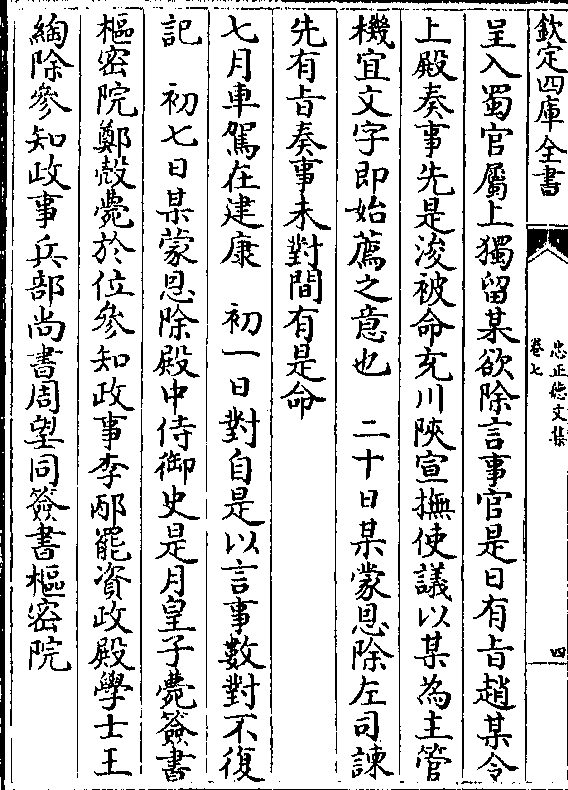 欽定四庫全書
忠正徳文集
卷七
四
呈入蜀官屬上獨留某欲除言事官是日有㫖趙某令
上殿奏事先是浚被命充川陝宣撫使議以某為主管
機宜文字即始薦之意也　二十日某蒙恩除左司諫
先有㫖奏事未對間有是命
七月車駕在建康　初一日對自是以言事數對不復
記　初七日某蒙恩除殿中侍御史是月皇子薨簽書
樞密院鄭瑴薨於位參知政事李邴罷資政殿學士王
綯除參知政事兵部尚書周望同簽書樞密院